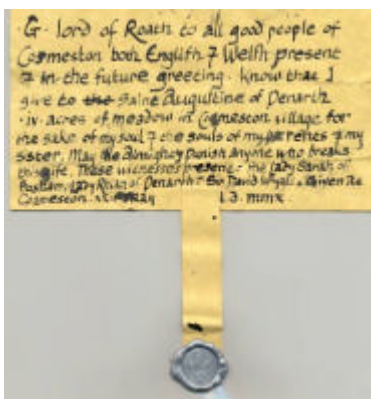 G. lord of Roath to all good people of
Cosmeston both English 7 Welsh present
7 in the future greeting. Know that I
give to the Saint Augustine of Penarth
.iv. acres of meadow in Cosmeston village for
the sake of my soul 7 the souls of my parents 7 my
sister. May the Almighty punish anyone who breaks
this gift. These witnesses present - the lady Sarah of
lady of Penarth Sir David Given the
Cosmeston